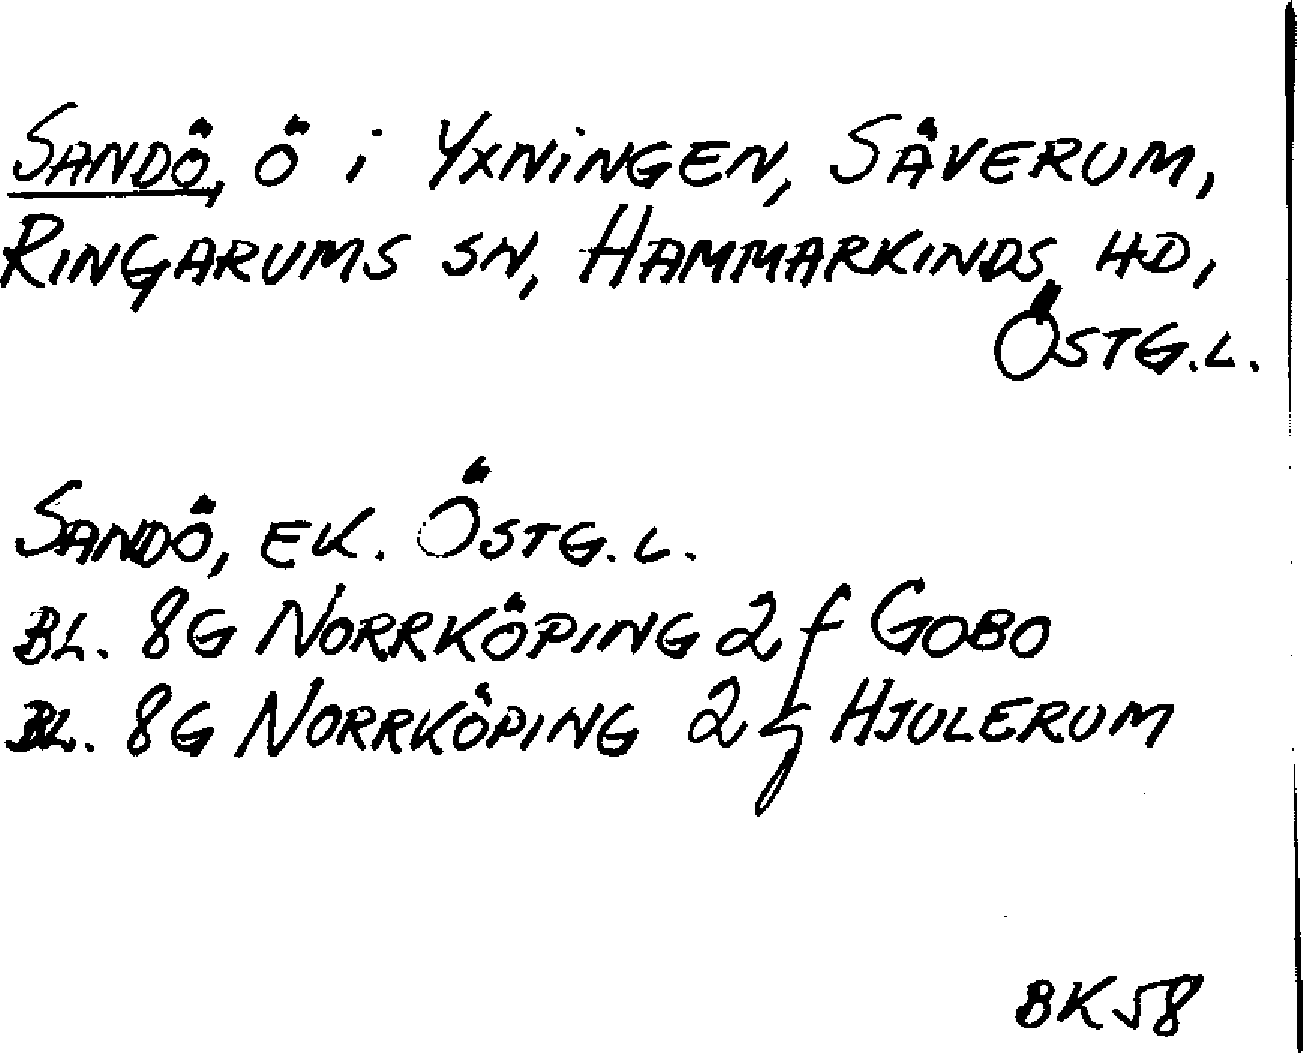 SANDÖ, Ö i YXNINGEN, SÄVERUM,
RINGARUMS SN, HAMMARKINDS HD,
ÖSTG.L.
SANDÖ, EK. ÖSTG.L.
BL. 8G NORRKÖPING 2f GOBO
BL. 8G NORRKÖPING 2g HJULERUM
BK58